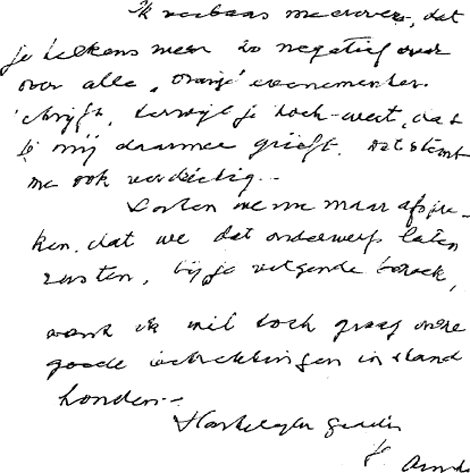 Ik verbaas me erover, dat
je telkens weer zo negatief over
over alle "oranje" evenementen
schrijft, terwijl je toch weet, dat
je mij daarmee grieft. Dat stemt
me ook verdrietig.-
Laten we nu maar afspre-
ken, dat we dat onderwerp laten
rusten, bij je volgende bezoek,
want ik wil toch graag onze
goede betrekkingen in stand
houden.-
Hartelijke groeten